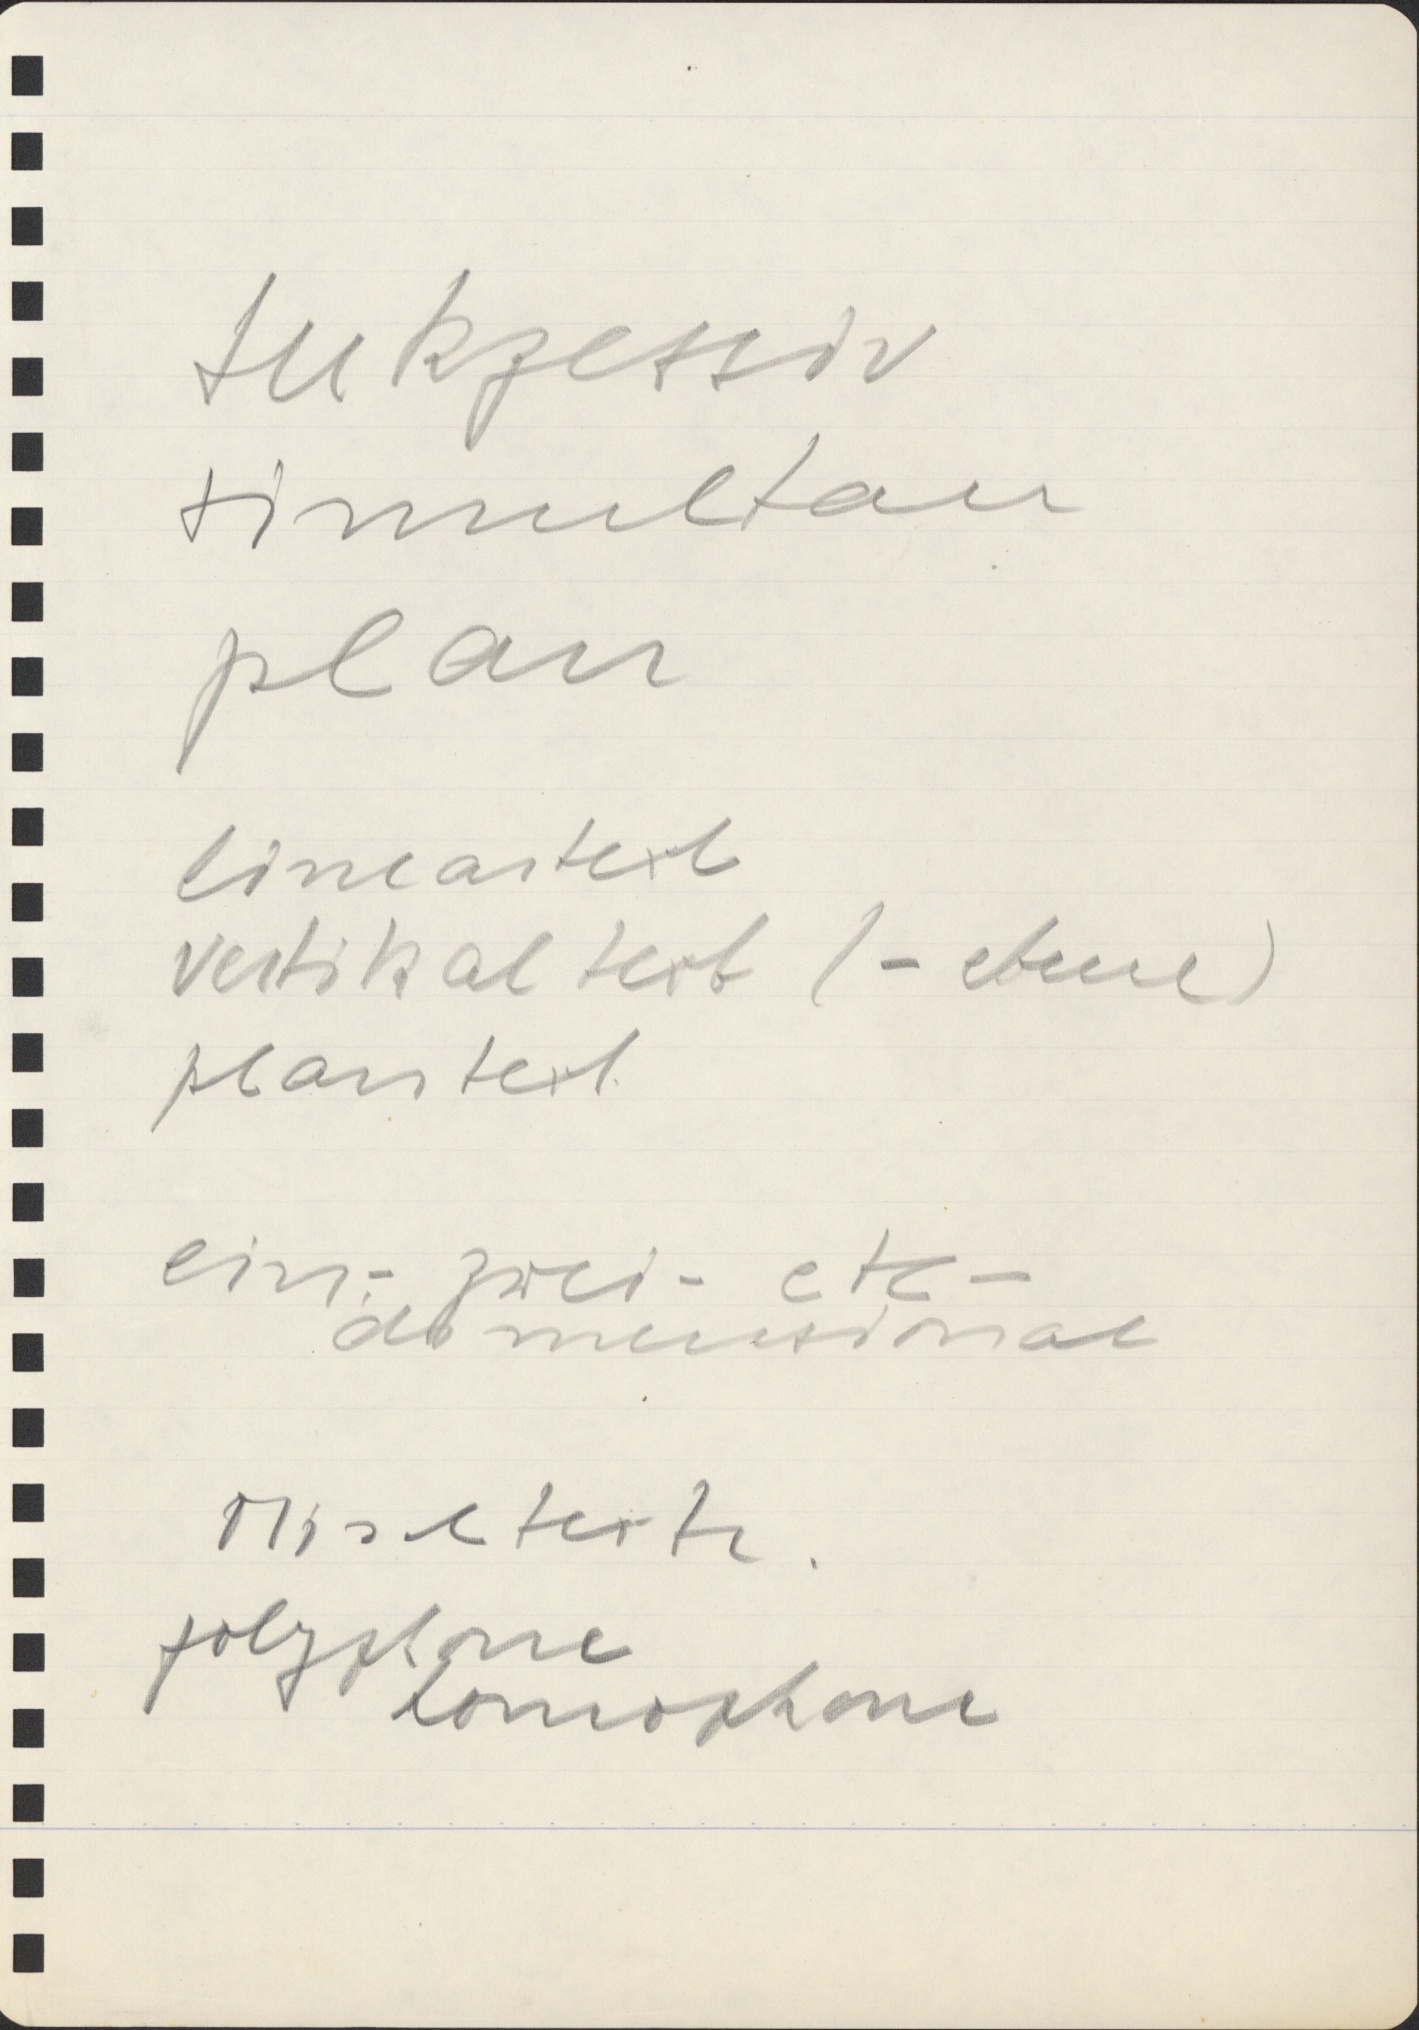 sukzessiv
simultan
plan
lineartext
vertikaltext (-ebene)
plantext
ein- zwei- etc-
dimensional
Mischtexte.
polyphone
homophone